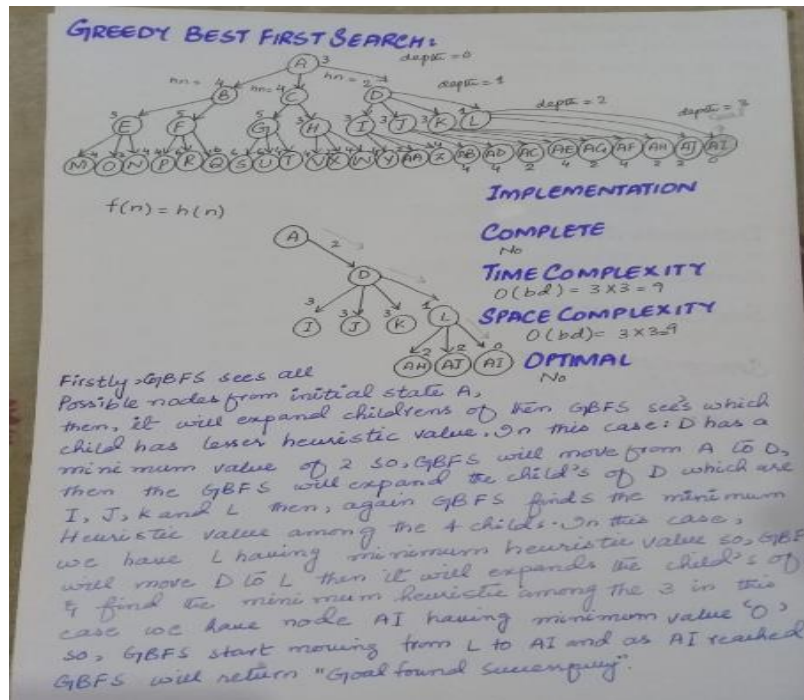 GREEDY BEST FIRST SEARCH:
A 3 depth = 0
hn = 4 hn = 4 hn = 2 depth = 1
B C D
5 5 5 3 3 3 3 1 depth = 2
E F G H I J K L depth = 3
M O N P R Q S U T V X W Y AA Z AB AD AC AE AG AF AH AJ AI
4 4 2 4 2 4 2 2 0
f(n) = h(n)
IMPLEMENTATION
A
2
COMPLETE
No
D
TIME COMPLEXITY
O(bd) = 3 x 3 = 9
3 3 3 1
I J K L
SPACE COMPLEXITY
O(bd) = 3 x 3 = 9
2 2 0
AH AJ AI
OPTIMAL
No
Firstly, GBFS sees all
Possible nodes from initial state A,
then, it will expand childrens of then GBFS see's which
child has lesser heuristic value. In this case: D has a
minimum value of 2 so, GBFS will move from A to D,
then the GBFS will expand the child's of D which are
I, J, K and L then, again GBFS finds the minimum
Heuristic value among the 4 childs. In this case,
we have L having minimum heuristic value so, GBF
will move D to L then it will expands the child's of
& find the minimum heuristic among the 3 in this
case we have node AI having minimum value '0',
so, GBFS start moving from L to AI and as AI reached
GBFS will return "Goal found successfully".